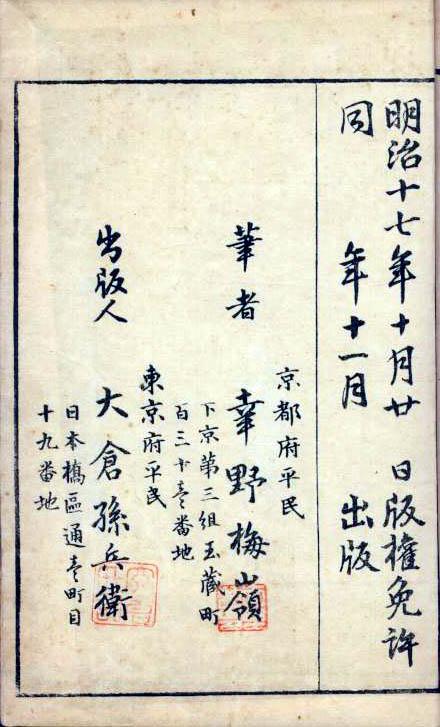 明治十七年十月廿 日版權免許
同 年十一月 出版
京都府平民
筆者 幸野楳嶺
下京第三組玉藏町
百三十壱番地
東京府平民
出版人 大倉孫兵衛
日本橋區通壱町目
十九番地